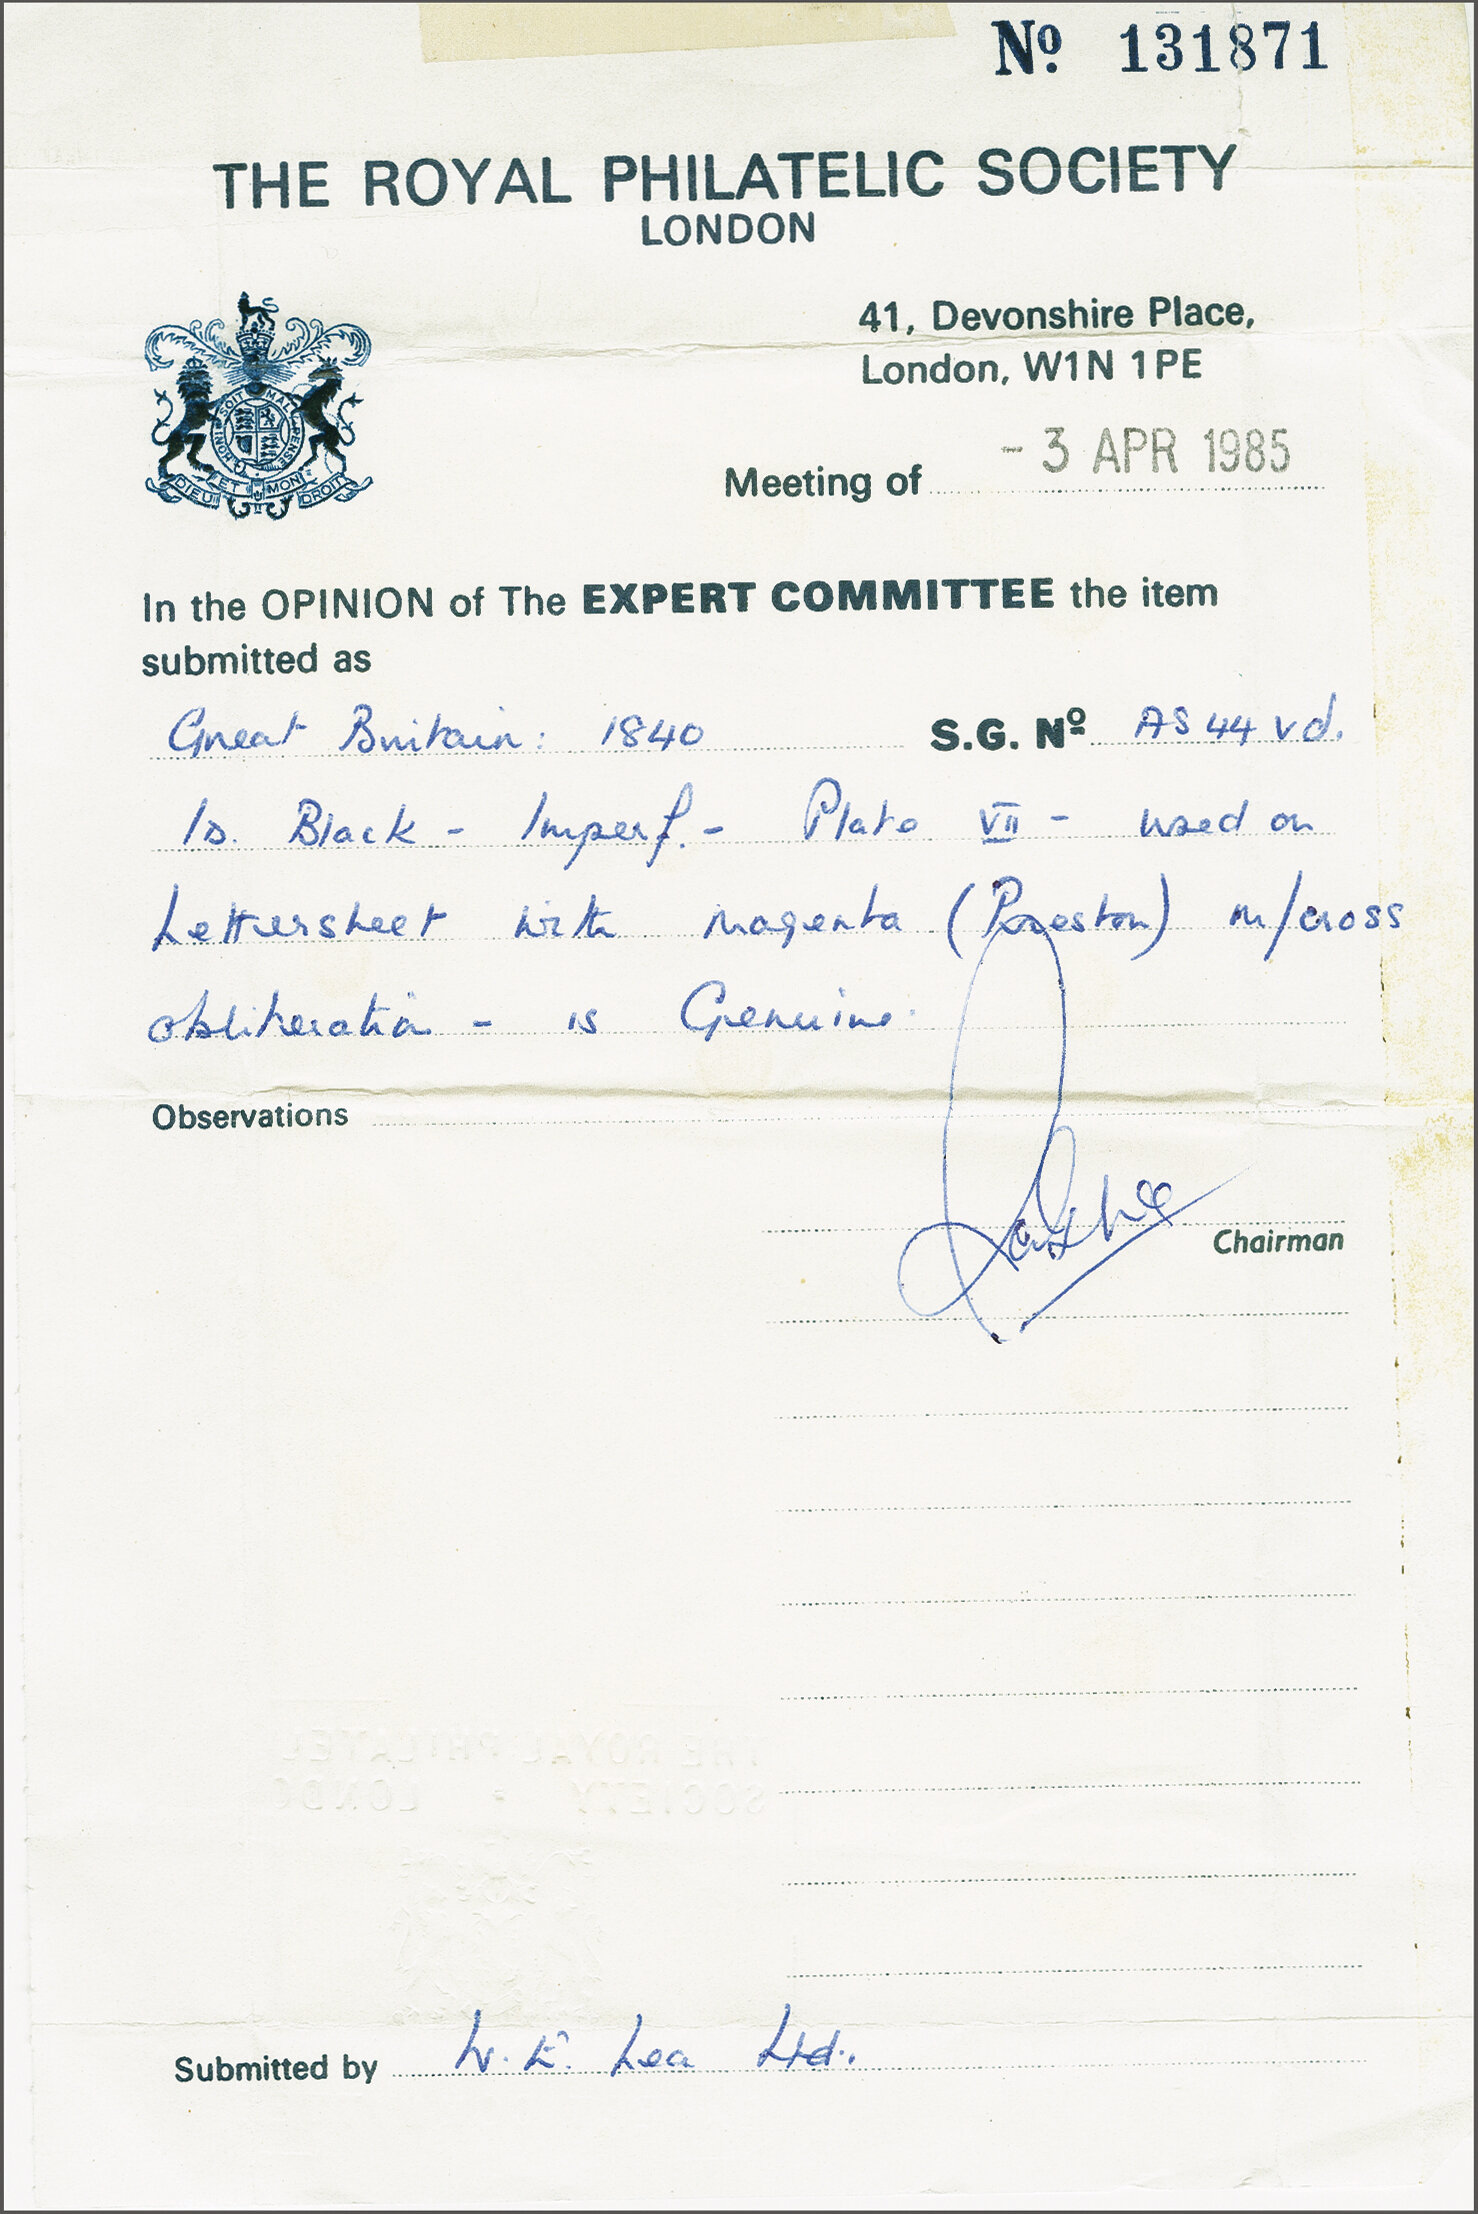 Nº 131871
THE ROYAL PHILATELIC SOCIETY
LONDON
41, Devonshire Place,
London, W1N 1PE
HONI SOIT MAL PENSE
DIEU ET MON DROIT
Meeting of - 3 APR 1985
In the OPINION of The EXPERT COMMITTEE the item
submitted as
Great Britain: 1840 S.G. Nº AS 44 vd.
1d. Black - Imperf. - Plate VII - used on
Lettersheet with magenta (Preston) m/cross
obliteration - is Genuine.
Observations
Chairman
THE ROYAL PHILATEL
SOCIETY - LONDO
Submitted by W. E. Lea Ltd.